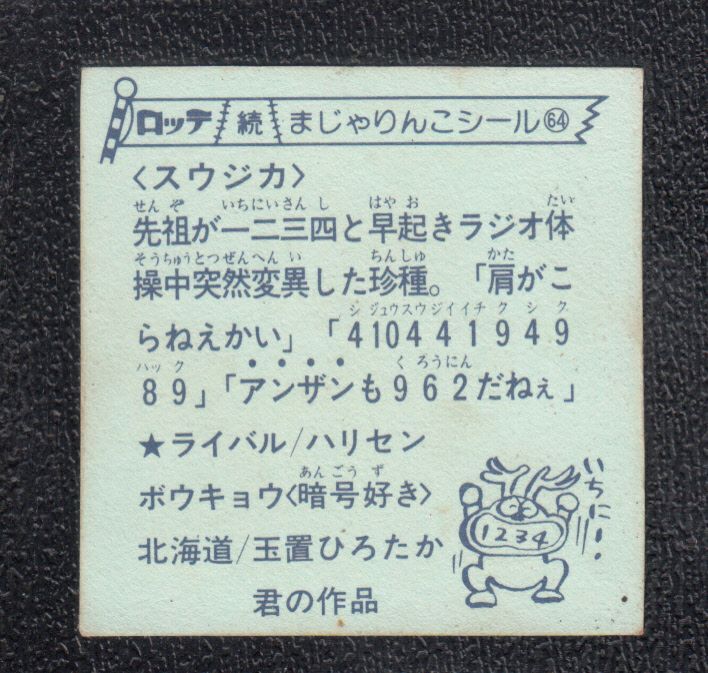 ロッテ 続 まじゃりんこシール64
〈スウジカ〉
せんぞ いちにいさんし はやお たい
先祖が一二三四と早起きラジオ体
そうちゅうとつぜんへんい ちんしゅ かた
操中突然変異した珍種。「肩がこ
シジュウスウジイイチクシク
らねえかい」「410441949
ハック くろうにん
89」「アンザンも962だねぇ」
★ライバル/ハリセン
あんごうず
ボウキョウ〈暗号好き〉
北海道/玉置ひろたか
君の作品
1234
いちにー!